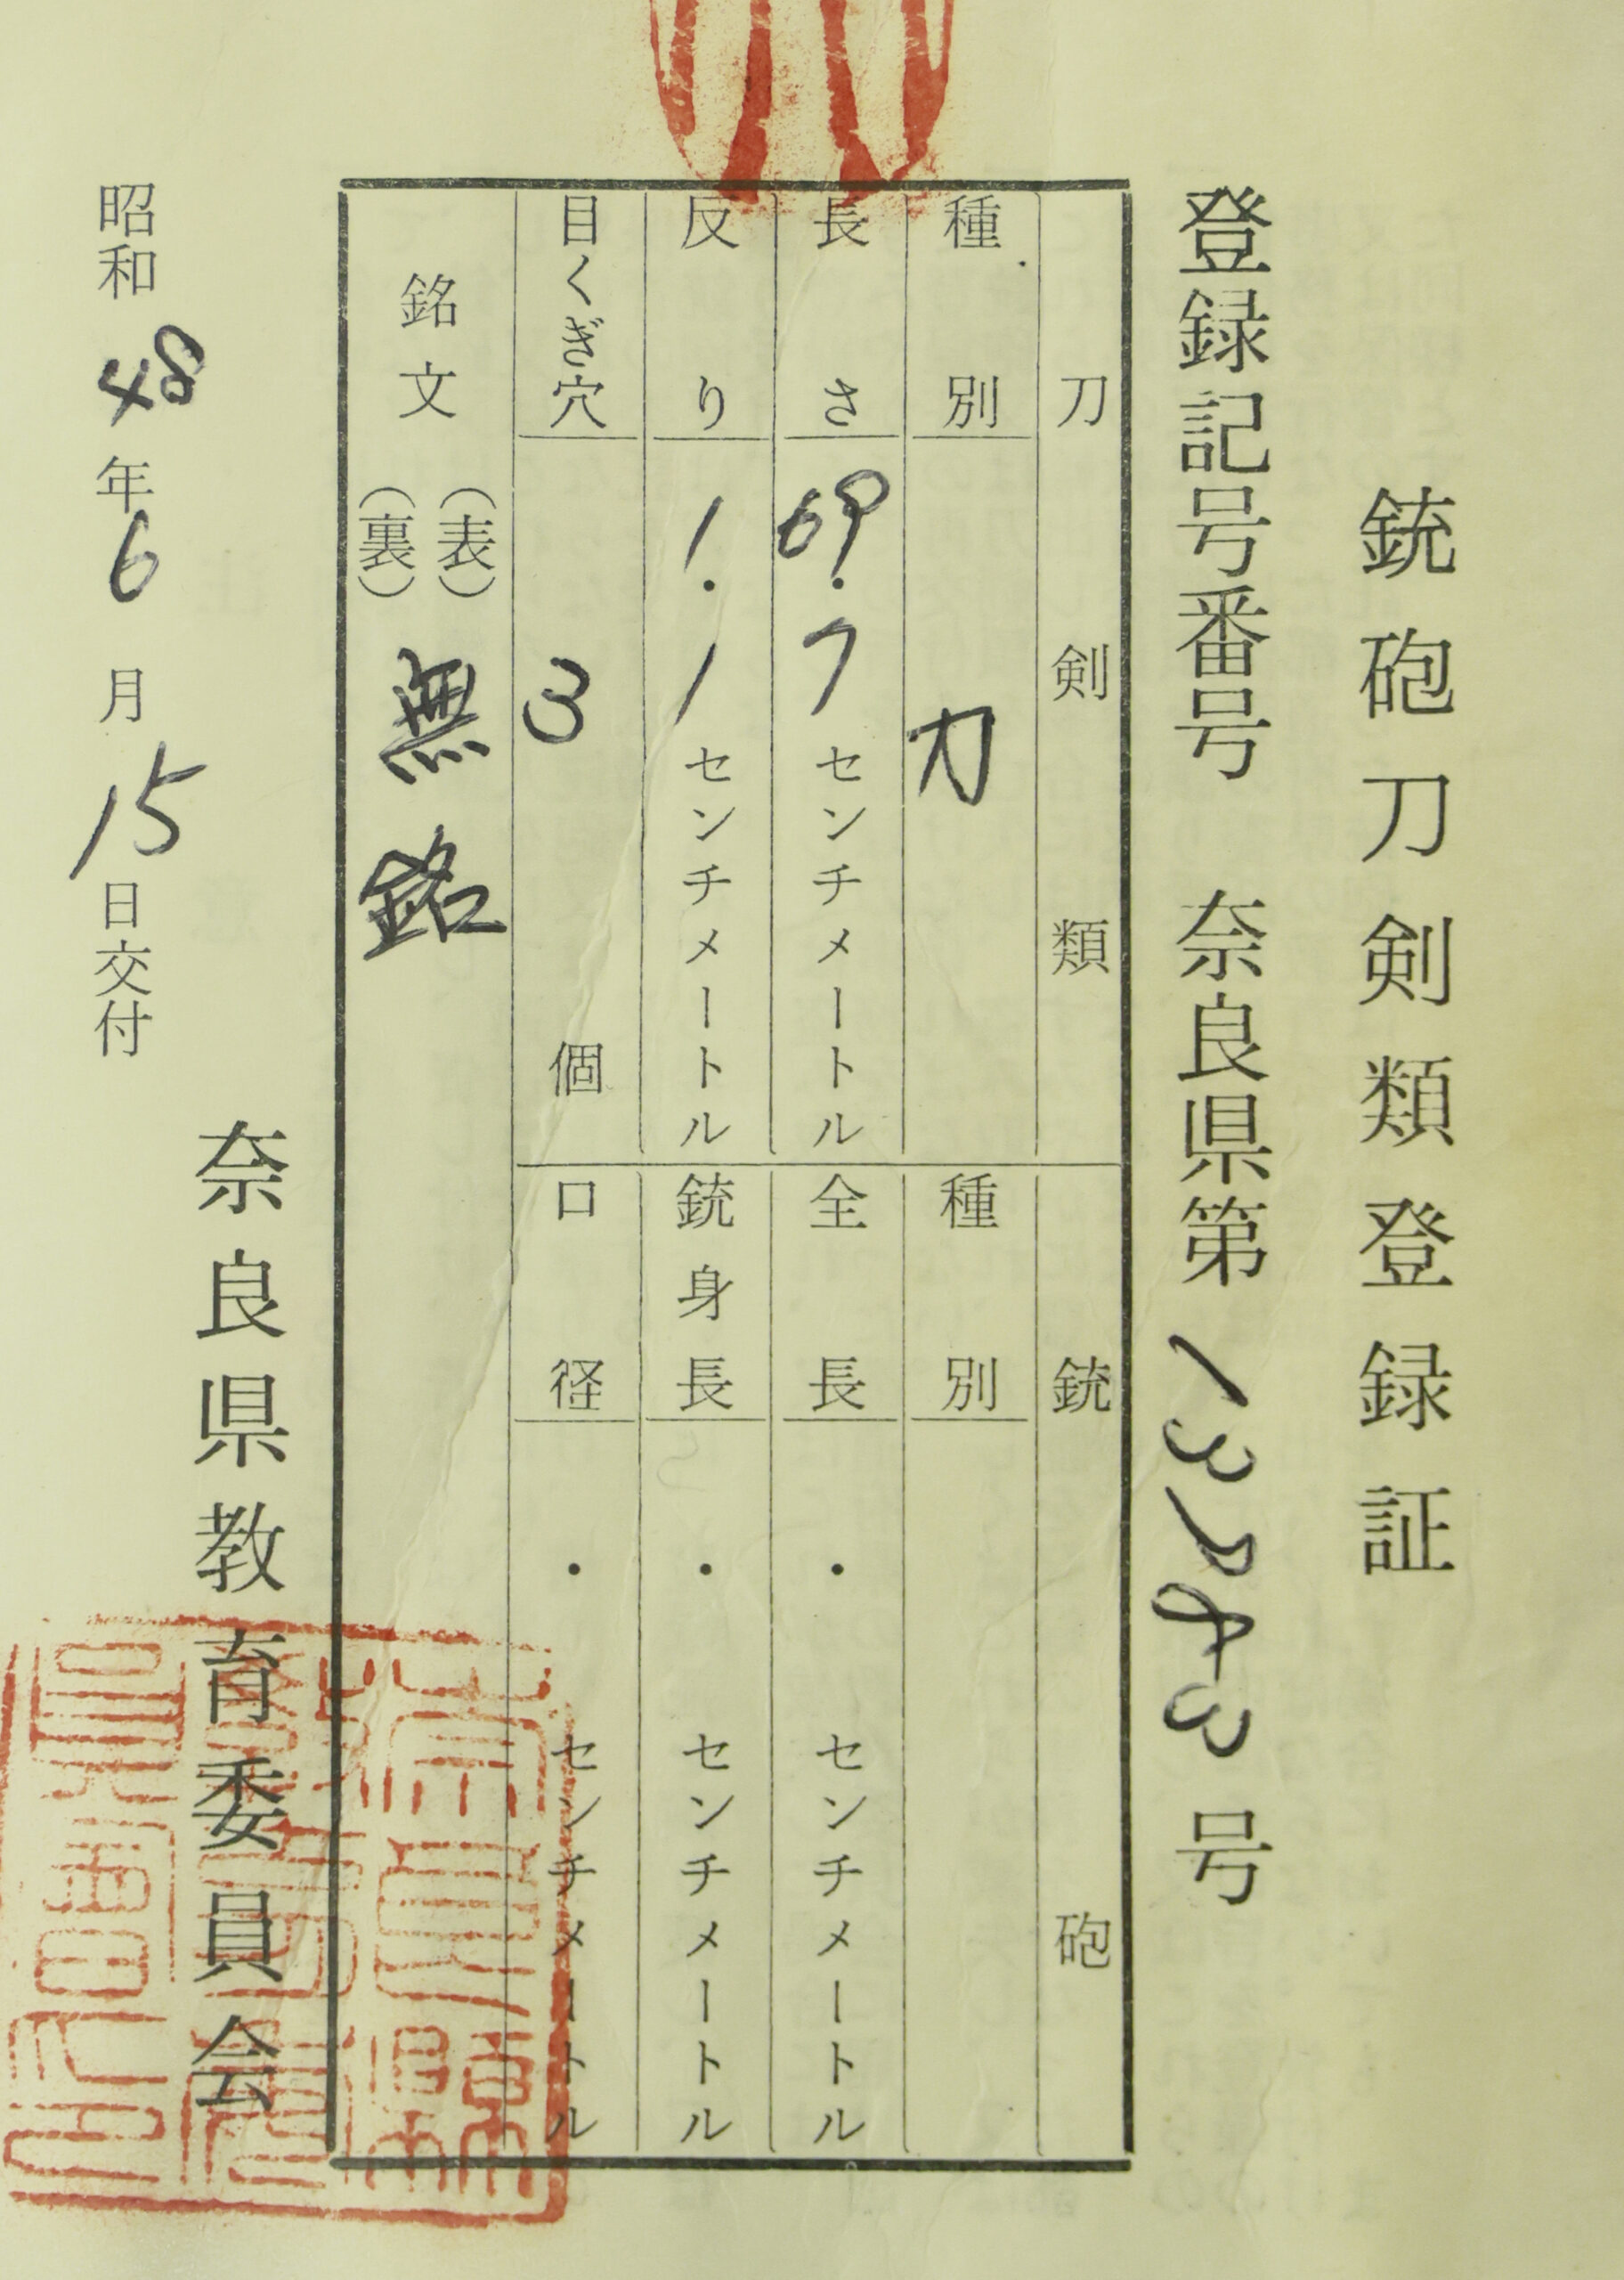 銃砲刀剣類登録証
登録記号番号 奈良県第 号
刀剣類
種別 刀
長さ 69.7センチメートル
反り 1.1センチメートル
目くぎ穴 3個
銃砲
種別
全長 ・センチメートル
銃身長 ・センチメートル
口径 ・センチメートル
銘文 (表) (裏) 無銘
奈良県教育委員会
昭和48年6月15日交付